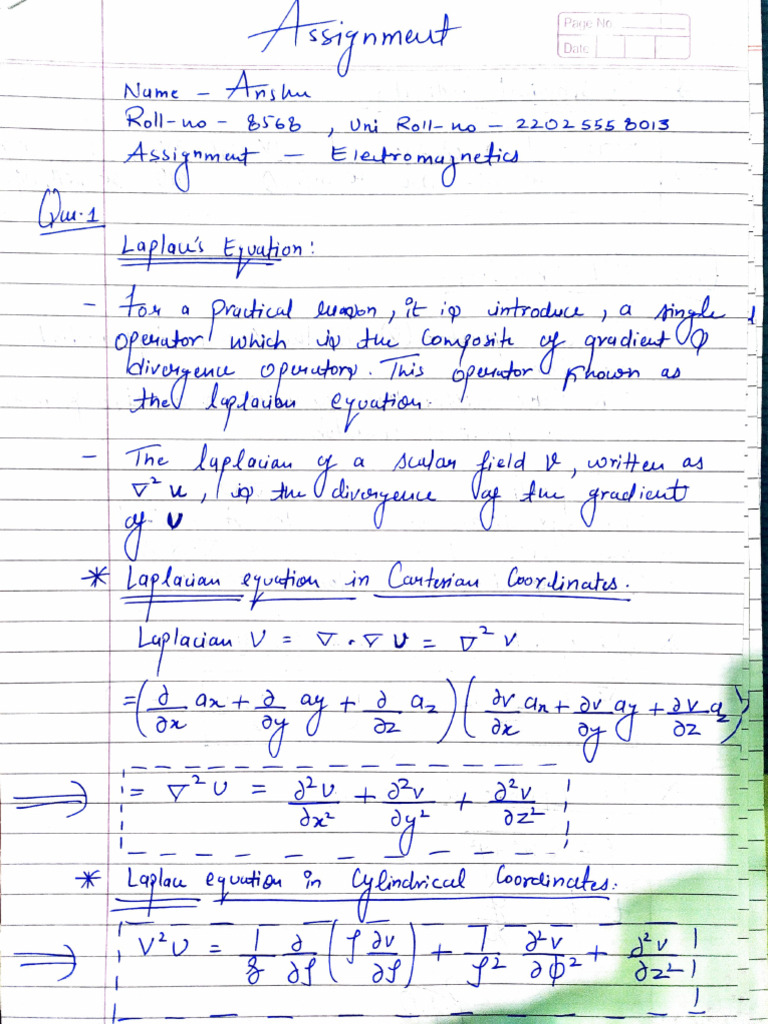 Assignment
Page No
Date
Name - Anshu
Roll-no - 8568 , Uni Roll-no - 22025558013
Assignment - Electromagnetics
Que.1
Laplace's Equation:
- For a practical reason, it is introduce, a single
operator which is the composite of gradient &
divergence operators. This operator known as
the laplacian equation.
- The laplacian of a scalar field V, written as
∇² u, is the divergence of the gradient
of U
* Laplacian equation in Cartesian Coordinates.
Laplacian V = ∇ · ∇ U = ∇² V
= (∂/∂x ax + ∂/∂y ay + ∂/∂z az) (∂v/∂x ax + ∂v/∂y ay + ∂v/∂z az)
⟹ = ∇² U = ∂²U/∂x² + ∂²v/∂y² + ∂²v/∂z²
* Laplace equation in Cylindrical Coordinates:
⟹ ∇²U = 1/ρ ∂/∂ρ (ρ ∂v/∂ρ) + 1/ρ² ∂²v/∂ϕ² + ∂²v/∂z²